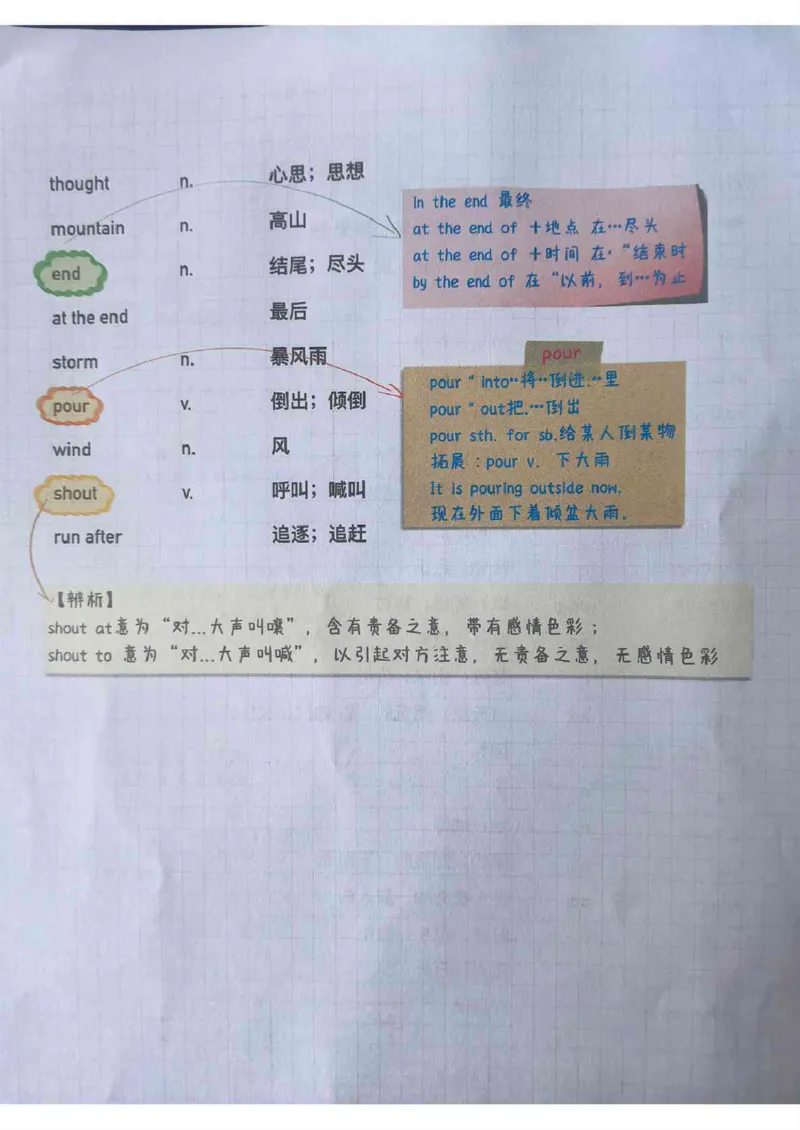 thought n. 心思；思想
mountain n. 高山
end n. 结尾；尽头
at the end 最后
storm n. 暴风雨
pour v. 倒出；倾倒
wind n. 风
shout v. 呼叫；喊叫
run after 追逐；追赶
In the end 最终
at the end of ＋地点 在…尽头
at the end of ＋时间 在·“结束时
by the end of 在“以前，到…为止
pour
pour “ into··将··倒进.··里
pour “ out把.…倒出
pour sth. for sb.给某人倒某物
拓展：pour v. 下大雨
It is pouring outside now.
现在外面下着倾盆大雨。
【辨析】
shout at意为“对...大声叫嚷”，含有责备之意，带有感情色彩；
shout to 意为“对...大声叫喊”，以引起对方注意，无责备之意，无感情色彩